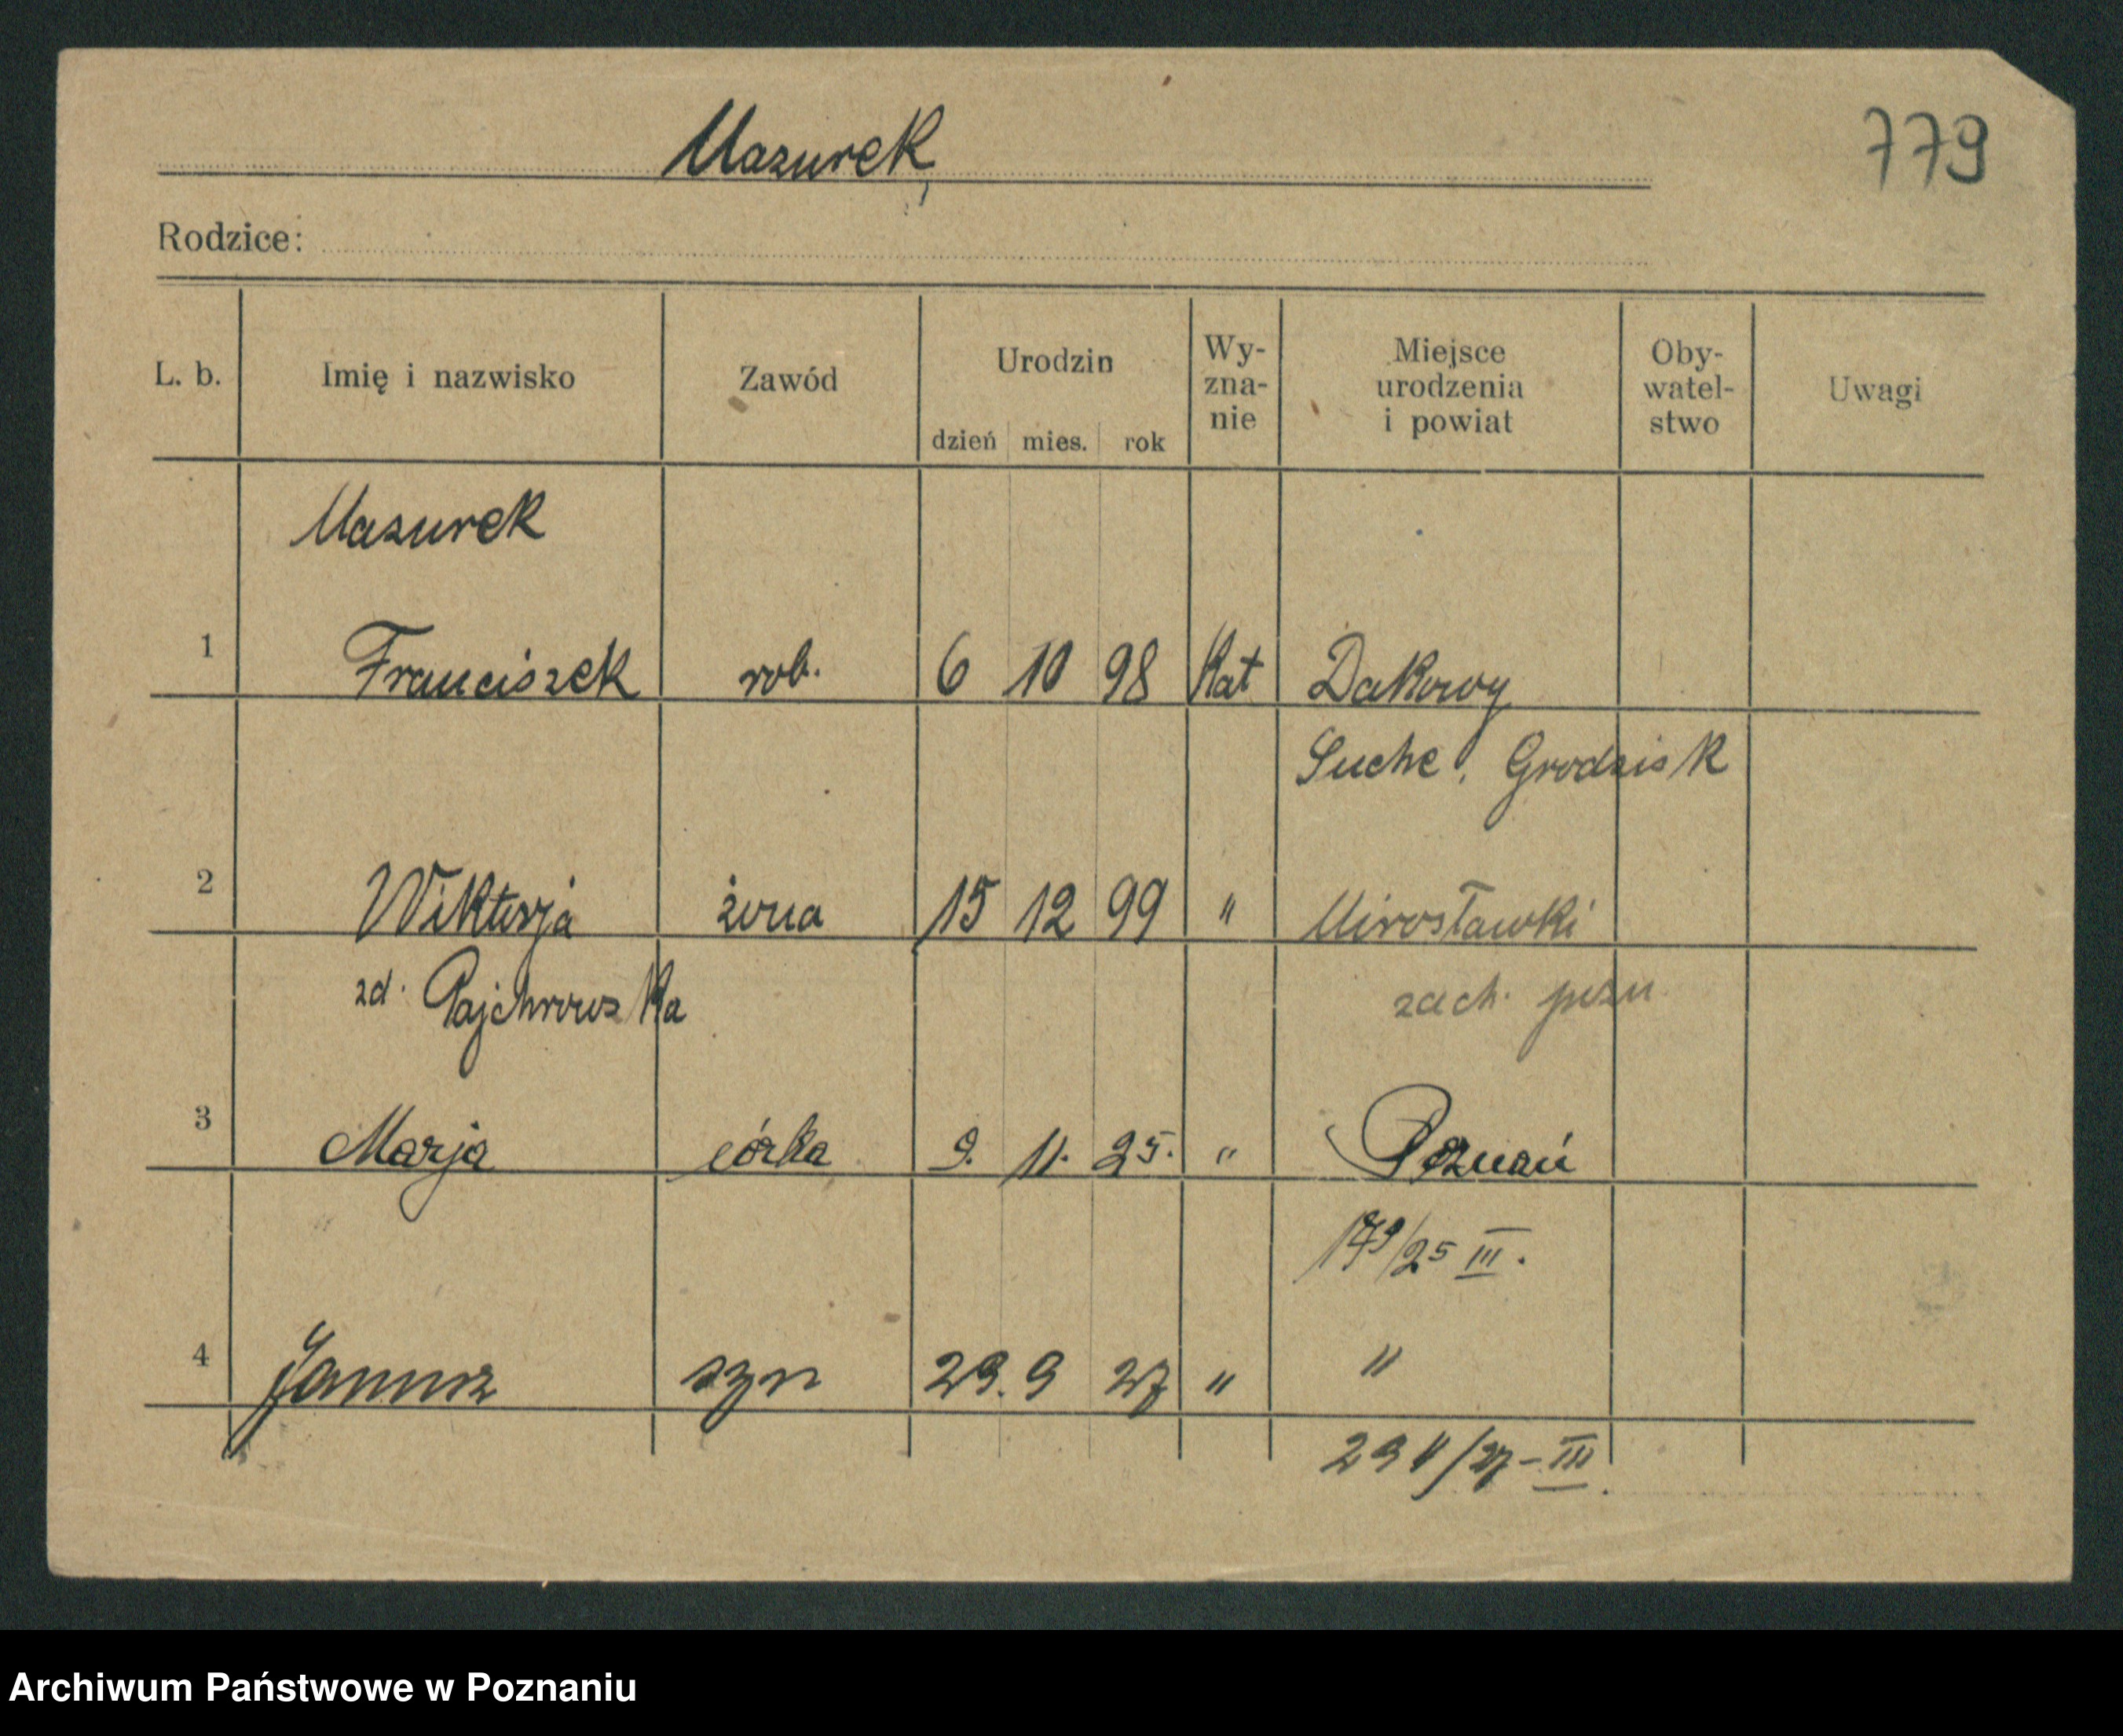 Mazurek
779
Rodzice:
L. b. Imię i nazwisko Zawód Urodzin dzień mies. rok Wy-zna-nie Miejsce urodzenia i powiat Oby-watel-stwo Uwagi
Mazurek
1 Franciszek rob. 6 10 98 Kat Dakowy
Suche, Grodzisk
2 Wiktorja żona 15 12 99 " Mirosławki
zd. zach.
3 Marja córka 9. 11. 25. " Poznań
/25 III.
4 Janusz syn 29. 9 27 " "
/27-III.
Archiwum Państwowe w Poznaniu